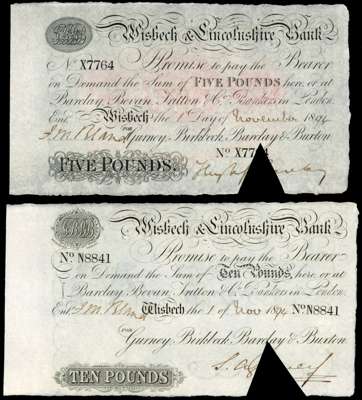 Wisbech & Lincolnshire Bank
No X7764 I Promise to pay the Bearer
on Demand the Sum of FIVE POUNDS here, or at
Barclay, Bevan, Tritton & Co. Bankers in London.
Entd Wisbech the 1 Day of November 1894
FOR Gurney, Birkbeck, Barclay & Buxton
No X77
FIVE POUNDS
Wisbech & Lincolnshire Bank
No N8841 I Promise to pay the Bearer
on Demand the Sum of Ten Pounds, here, or at
Barclay, Bevan, Tritton & Co. Bankers in London.
Entd Wisbech the 1 of Nov 1894 No N8841
FOR
Gurney, Birkbeck, Barclay & Buxton
TEN POUNDS